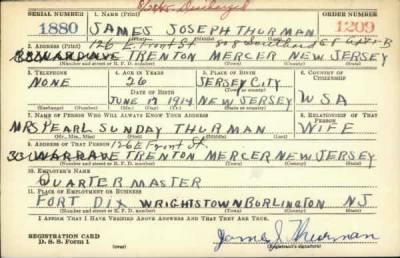 8/2/45 Discharged
SERIAL NUMBER 1. NAME (Print) ORDER NUMBER
1880 JAMES JOSEPH THURMAN 1209
(First) (Middle) (Last)
126 E. Front St
2. ADDRESS (Print)
TRENTON MERCER NEW JERSEY
(Number and street or R. F. D. number) (Town) (County) (State)
3. TELEPHONE 4. AGE IN YEARS 5. PLACE OF BIRTH 6. COUNTRY OF CITIZENSHIP
NONE 26 JERSEY CITY
DATE OF BIRTH (Town or county)
JUNE 17 1914 NEW JERSEY U S A
(Exchange) (Number) (Mo.) (Day) (Yr.) (State or country)
7. NAME OF PERSON WHO WILL ALWAYS KNOW YOUR ADDRESS 8. RELATIONSHIP OF THAT PERSON
MRS PEARL SUNDAY THURMAN WIFE
(Mr., Mrs., Miss) (First) (Middle) (Last)
9. ADDRESS OF THAT PERSON 126 E Front St.
TRENTON MERCER NEW JERSEY
(Number and street or R. F. D. number) (Town) (County) (State)
10. EMPLOYER'S NAME
QUARTERMASTER
11. PLACE OF EMPLOYMENT OR BUSINESS
FORT DIX WRIGHTSTOWN BURLINGTON NJ
(Number and street or R. F. D. number) (Town) (County) (State)
I AFFIRM THAT I HAVE VERIFIED ABOVE ANSWERS AND THAT THEY ARE TRUE.
REGISTRATION CARD
D. S. S. Form 1 (over) James J. Thurman
(Registrant's signature)